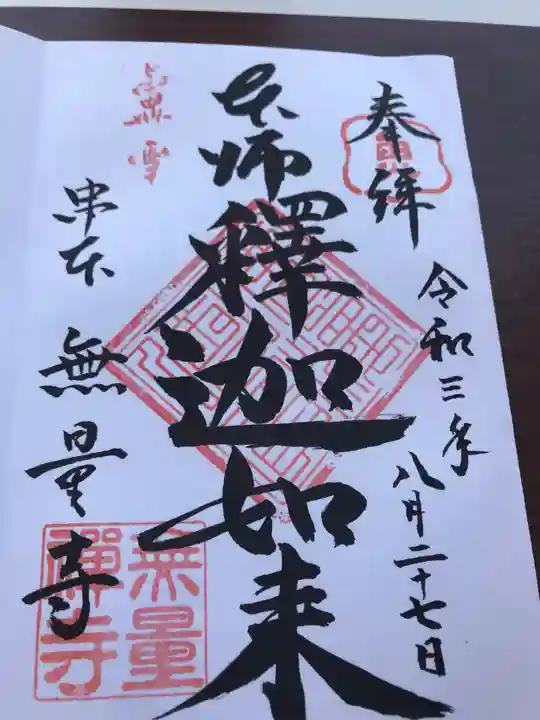 奉拜
令和三年
八月二十七日
本師釋迦如来
串本
無量寺
無量
禪寺